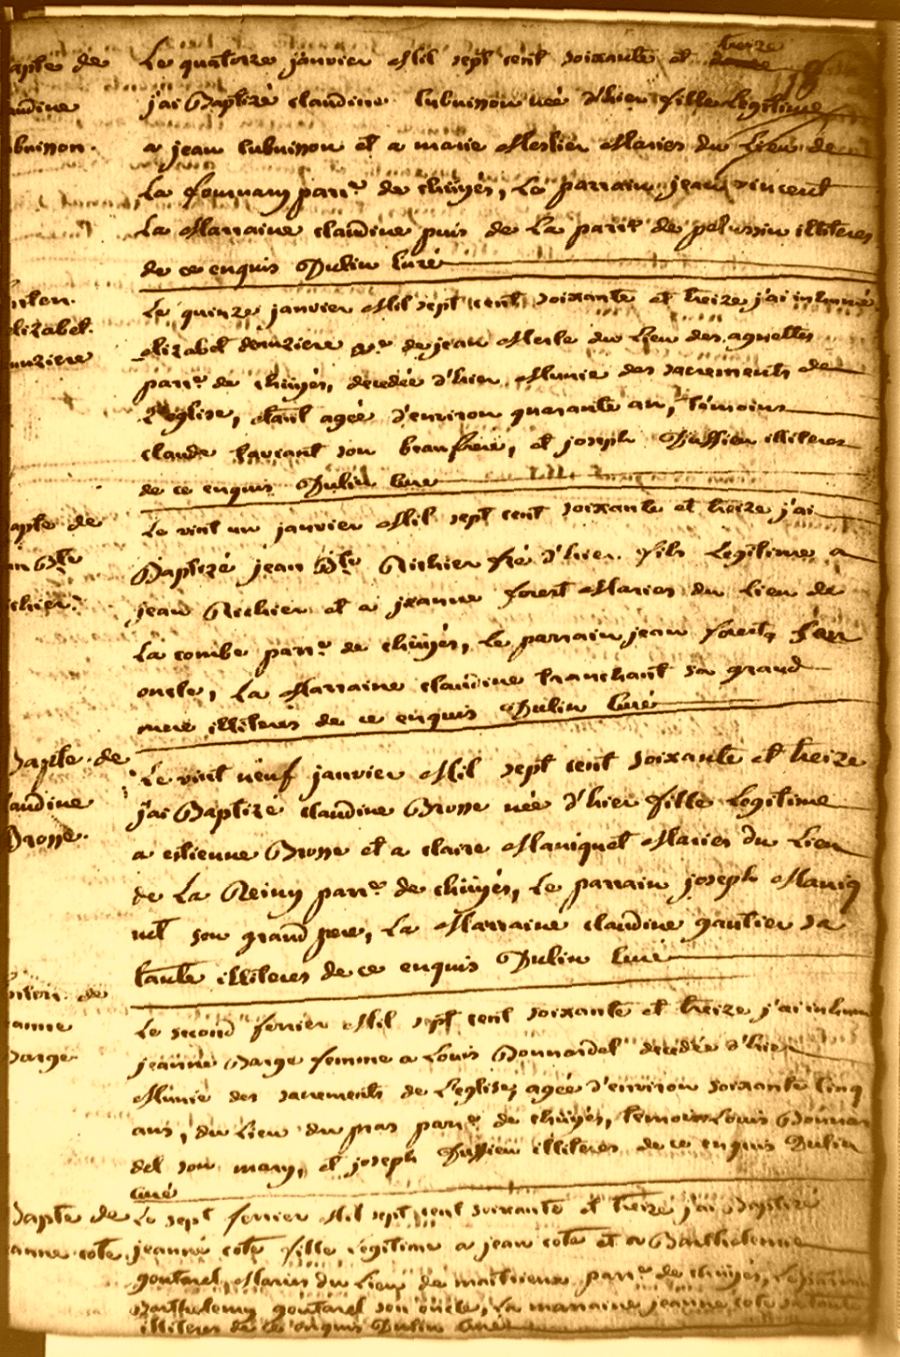 apte de
audine
ubuisson.
Le quatorze janvier Mil sept cent soixante et treize
18
j'ai Baptizé claudine Cubuisson née d'hier fille Legitime
a jean Cubuisson et a marie Meslier Mariés du Lieu de
La par.e de chuÿes, Le parrain jean vincent
La Marraine claudine puis de La par.e de pelussin illiteres
de ce enquis Dulin Curé
Elizabet.
Le quinze janvier Mil sept cent soixante et treize j'ai inhumé
Elizabet de jean Merle du Lieu des
par.e de chuÿes, decedée d'hier Munie des sacrements de
L'eglise, etant agée d'environ quarante an, témoins
claude son beaufrere, et joseph Dussieu illiteres
de ce enquis Dulin Curé
apte de
an Bte
chier.
Le vint un janvier Mil sept cent soixante et treize j'ai
Baptizé jean Bte Richier né d'hier fils Legitime a
jean Richier et a jeanne forest Mariés du Lieu de
La combe par.e de chuÿes, Le parrain jean forest, son
oncle, La Marraine claudine tranchant sa grand
mere illiteres de ce enquis Dulin Curé
Bapte. de
laudine
Brosse.
Le vint neuf janvier Mil sept cent soixante et treize
j'ai Baptizé claudine Brosse née d'hier fille Legitime
a estienne Brosse et a claire Maniquet Mariés du Lieu
de La par.e de chuÿes, Le parrain joseph Maniq
uet son grand pere, La Marraine claudine gautier sa
tante illiteres de ce enquis Dulin Curé
de
eanne
Barge
Le second fevrier Mil sept cent soixante et treize j'ai inhumé
jeanne Barge femme a Louis Bonnardel decedée d'hier
Munie des sacrements de L'eglise, agée d'environ soixante Cinq
ans, du Lieu du pras par.e de chuÿes, temoins Louis Bonnar
del son mary, et joseph Dussieu illiteres de ce enquis Dulin
Curé
Bapte de
anne cote.
Le sept fevrier Mil sept cent soixante et treize j'ai Baptizé
jeanne cote fille Legitime a jean cote et a Barthelemie
goutarel, Mariés du Lieu de par.e de chuÿes, Le
Barthelemy goutarel son oncle, La marraine jeanne cote sa tante
illiteres de ce enquis Dulin Curé